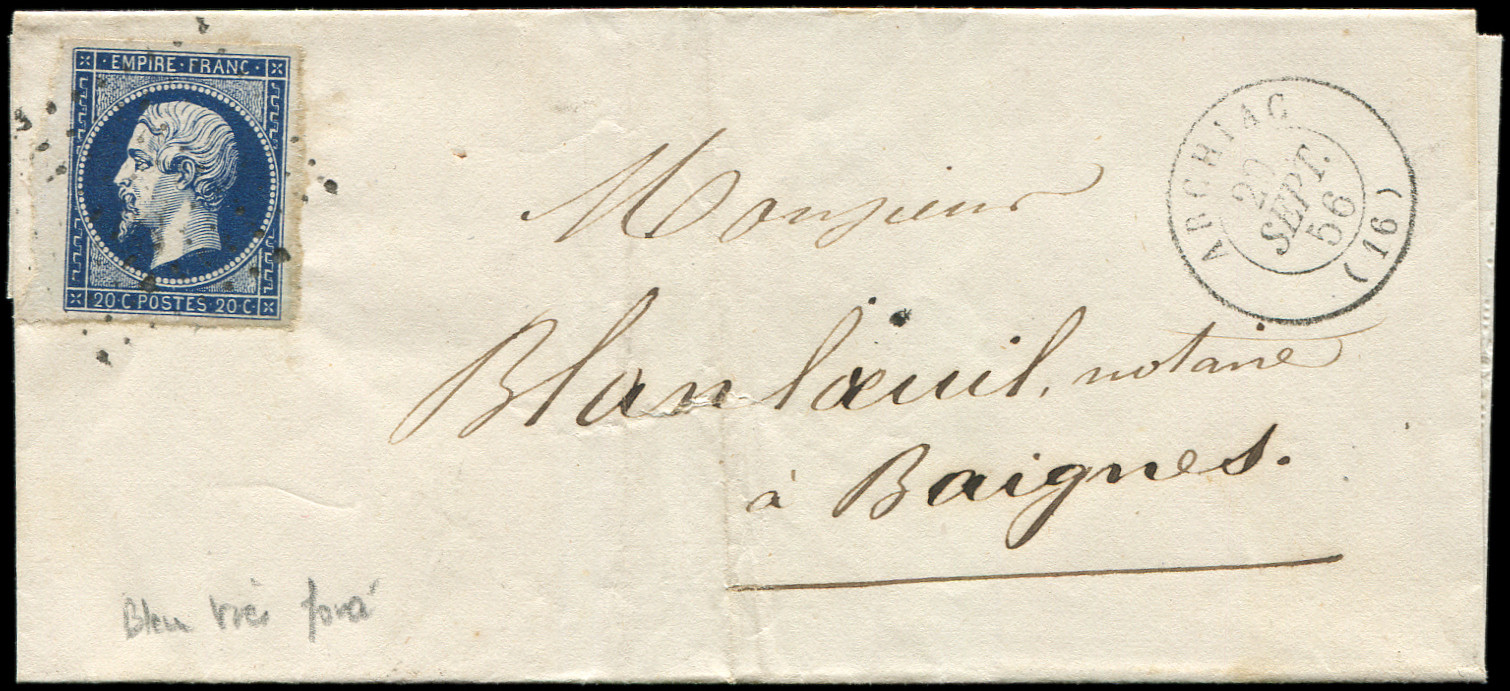 EMPIRE · FRANC ·
20 · C POSTES · 20 C ·
ARCHIAC
20
SEPT.
56
(16)
Monsieur
Blanlœuil, notaire
à Baignes.
Bleu très foncé